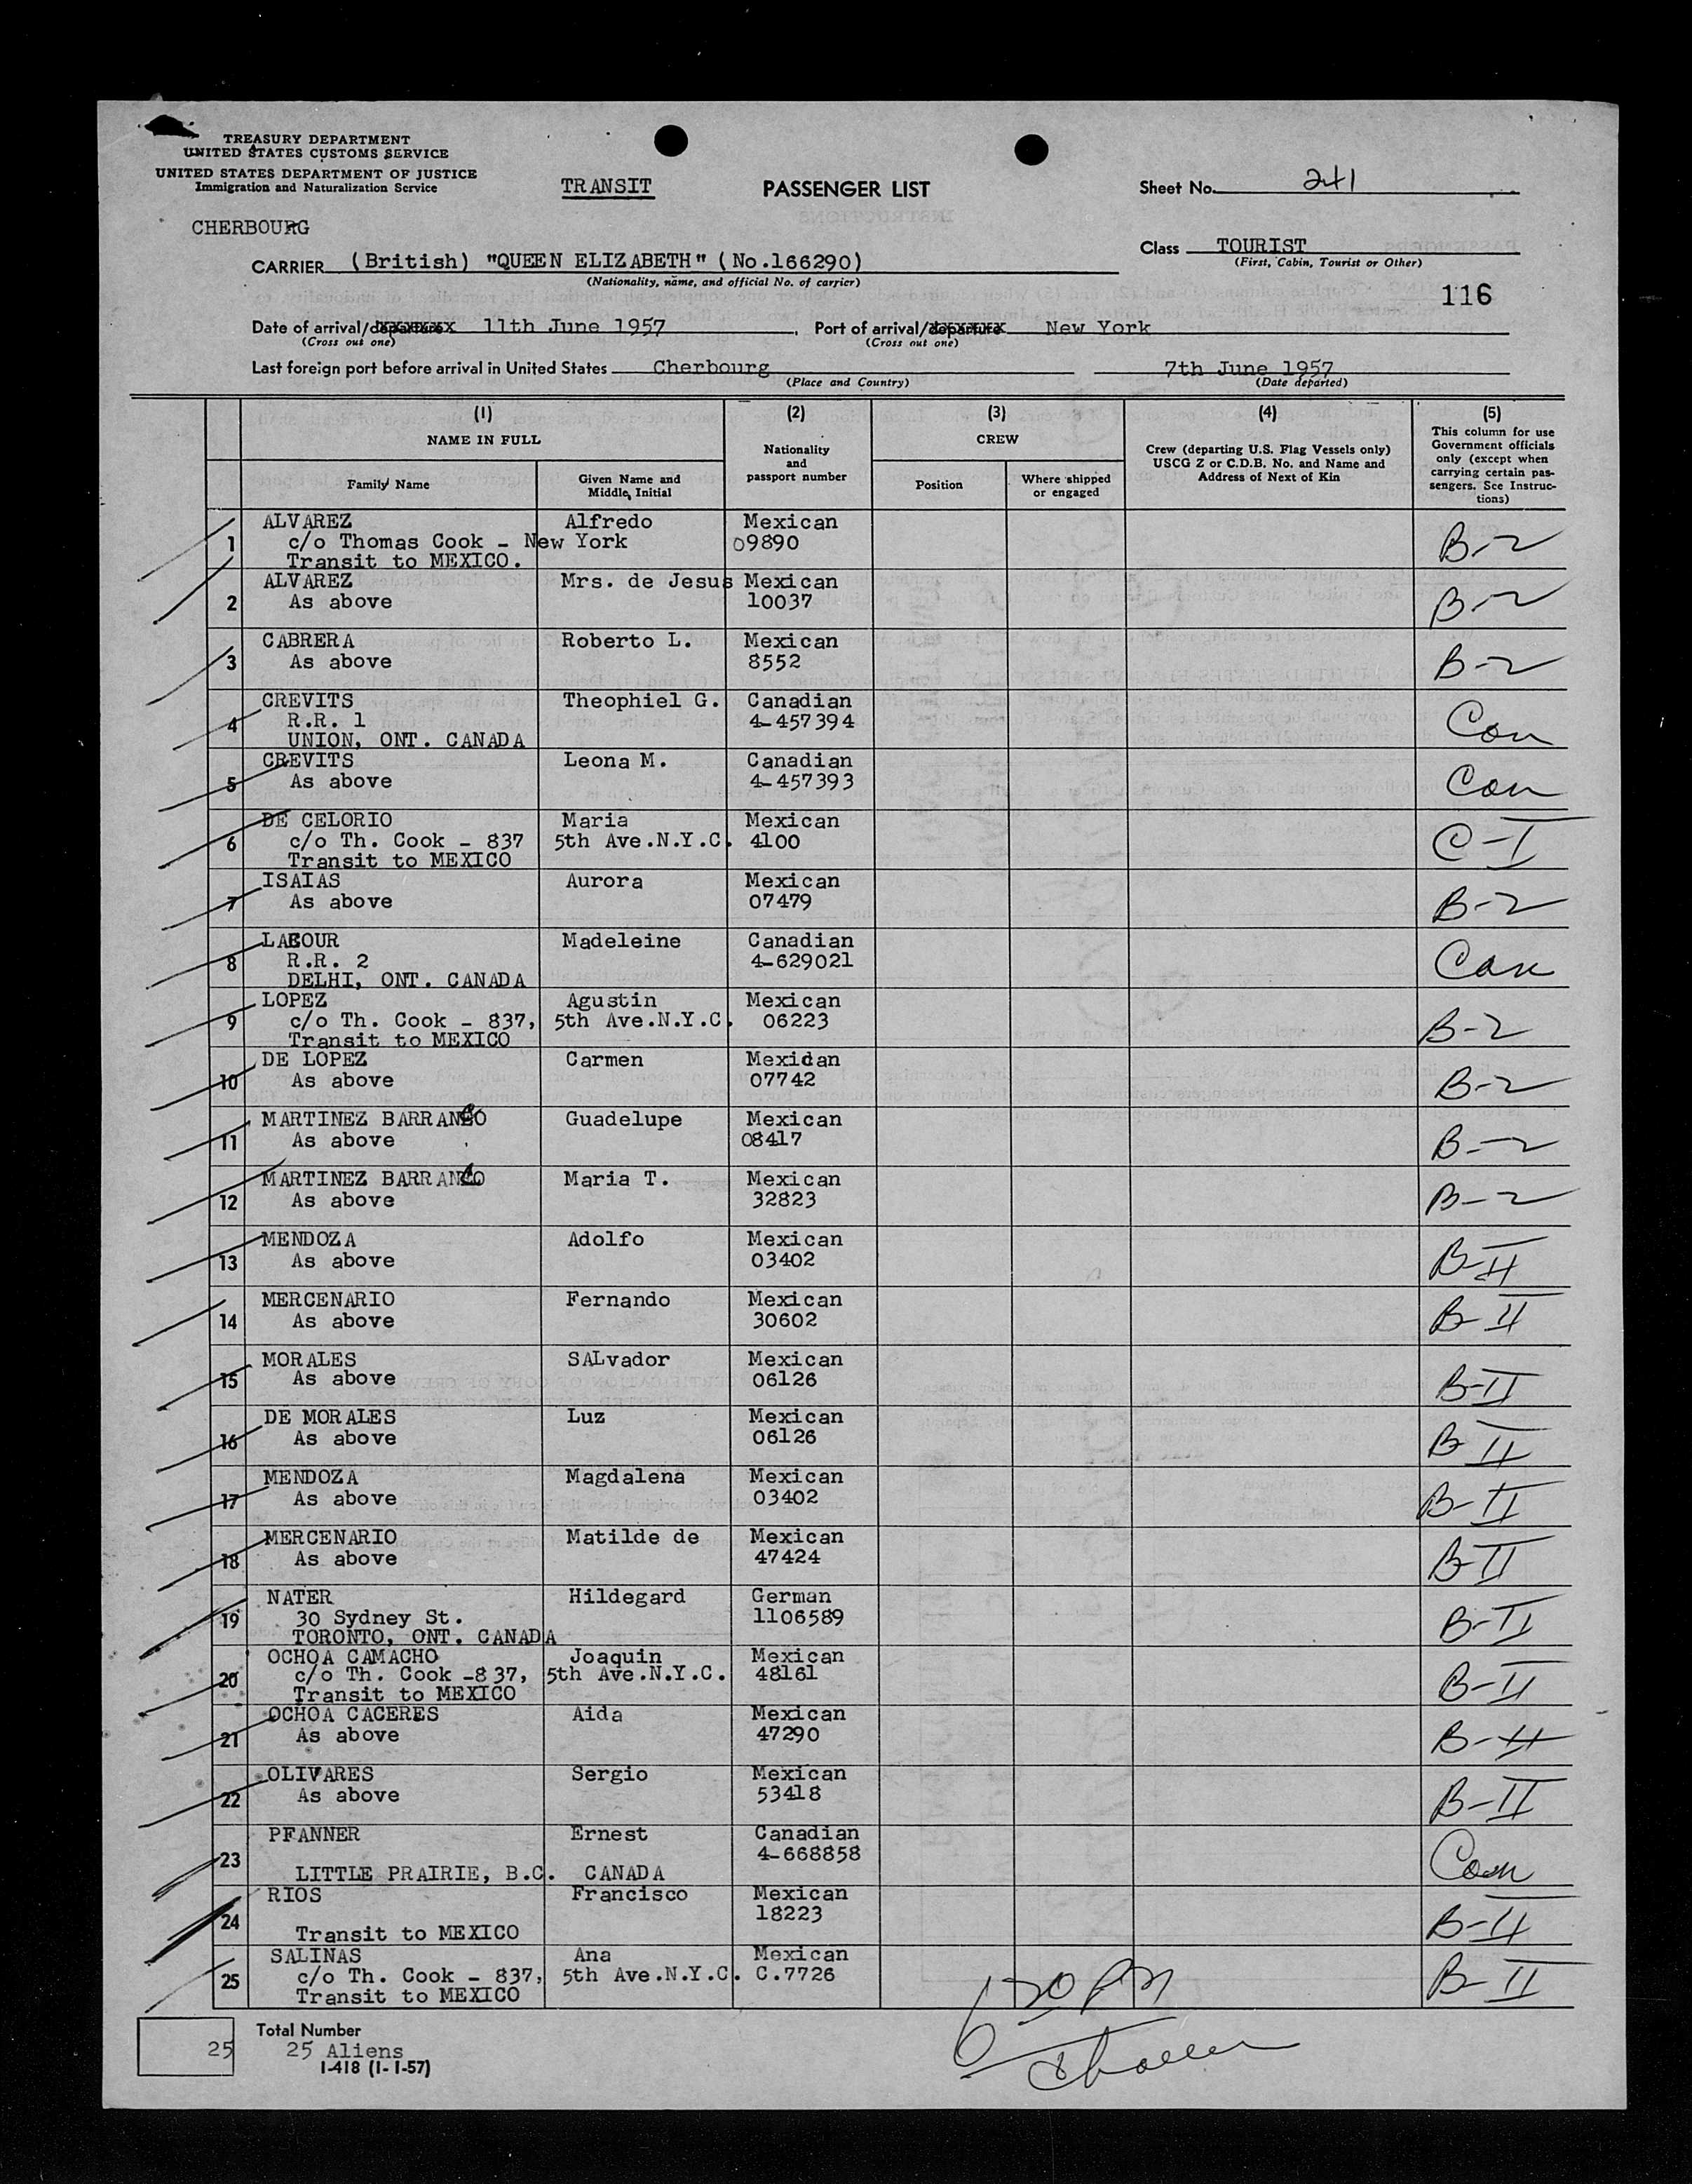 TREASURY DEPARTMENT
UNITED STATES CUSTOMS SERVICE
UNITED STATES DEPARTMENT OF JUSTICE
Immigration and Naturalization Service
TRANSIT
PASSENGER LIST
Sheet No. 241
CHERBOURG
Class TOURIST
(First, Cabin, Tourist or Other)
CARRIER (British) "QUEEN ELIZABETH" (No.166290)
(Nationality, name, and official No. of carrier)
116
Date of arrival/departure 11th June 1957, Port of arrival/departure New York
(Cross out one) (Cross out one)
Last foreign port before arrival in United States Cherbourg 7th June 1957
(Place and Country) (Date departed)
(1) (2) (3) (4) (5)
NAME IN FULL
Family Name
Given Name and Middle Initial
Nationality and passport number
CREW
Position
Where shipped or engaged
Crew (departing U.S. Flag Vessels only)
USCG Z or C.D.B. No. and Name and
Address of Next of Kin
This column for use
Government officials
only (except when
carrying certain pas-
sengers. See Instruc-
tions)
1 ALVAREZ Alfredo Mexican B-2
c/o Thomas Cook - New York 09890
Transit to MEXICO.
2 ALVAREZ Mrs. de Jesus Mexican B-2
As above 10037
3 CABRERA Roberto L. Mexican B-2
As above 8552
4 CREVITS Theophiel G. Canadian Can
R.R. 1 4-457394
UNION, ONT. CANADA
5 CREVITS Leona M. Canadian Can
As above 4-457393
6 DE CELORIO Maria Mexican C-I
c/o Th. Cook - 837 5th Ave.N.Y.C. 4100
Transit to MEXICO
7 ISAIAS Aurora Mexican B-2
As above 07479
8 Madeleine Canadian Can
R.R. 2 4-629021
DELHI, ONT. CANADA
9 LOPEZ Agustin Mexican B-2
c/o Th. Cook - 837, 5th Ave.N.Y.C. 06223
Transit to MEXICO
10 DE LOPEZ Carmen Mexidan B-2
As above 07742
11 MARTINEZ BARRANCO Guadelupe Mexican B-2
As above 08417
12 MARTINEZ BARRANCO Maria T. Mexican B-2
As above 32823
13 MENDOZA Adolfo Mexican B-II
As above 03402
14 MERCENARIO Fernando Mexican B-II
As above 30602
15 MORALES SALvador Mexican B-II
As above 06126
16 DE MORALES Luz Mexican B-II
As above 06126
17 MENDOZA Magdalena Mexican B-II
As above 03402
18 MERCENARIO Matilde de Mexican B-II
As above 47424
19 NATER Hildegard German B-II
30 Sydney St. 1106589
TORONTO, ONT. CANADA
20 OCHOA CAMACHO Joaquin Mexican B-II
c/o Th. Cook -837, 5th Ave.N.Y.C. 48161
Transit to MEXICO
21 OCHOA CACERES Aida Mexican B-II
As above 47290
22 OLIVARES Sergio Mexican B-II
As above 53418
23 PFANNER Ernest Canadian Can
4-668858
LITTLE PRAIRIE, B.C. CANADA
24 RIOS Francisco Mexican B-II
18223
Transit to MEXICO
25 SALINAS Ana Mexican B-II
c/o Th. Cook - 837, 5th Ave.N.Y.C. C.7726
Transit to MEXICO
Total Number
25 25 Aliens
I-418 (1-1-57)